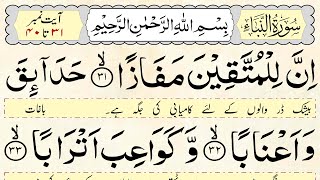 سورۃ النَّبَاِ
بِسْمِ اللّٰهِ الرَّحْمٰنِ الرَّحِیْمِ
آیت نمبر
۳۱ تا ۴۰
اِنَّ لِلْمُتَّقِیْنَ مَفَازًا ۳۱ حَدَآئِقَ
بیشک ڈر والوں کے لئے کامیابی کی جگہ ہے۔ باغات
وَاَعْنَابًا ۳۲ وَّكَوَاعِبَ اَتْرَابًا ۳۳